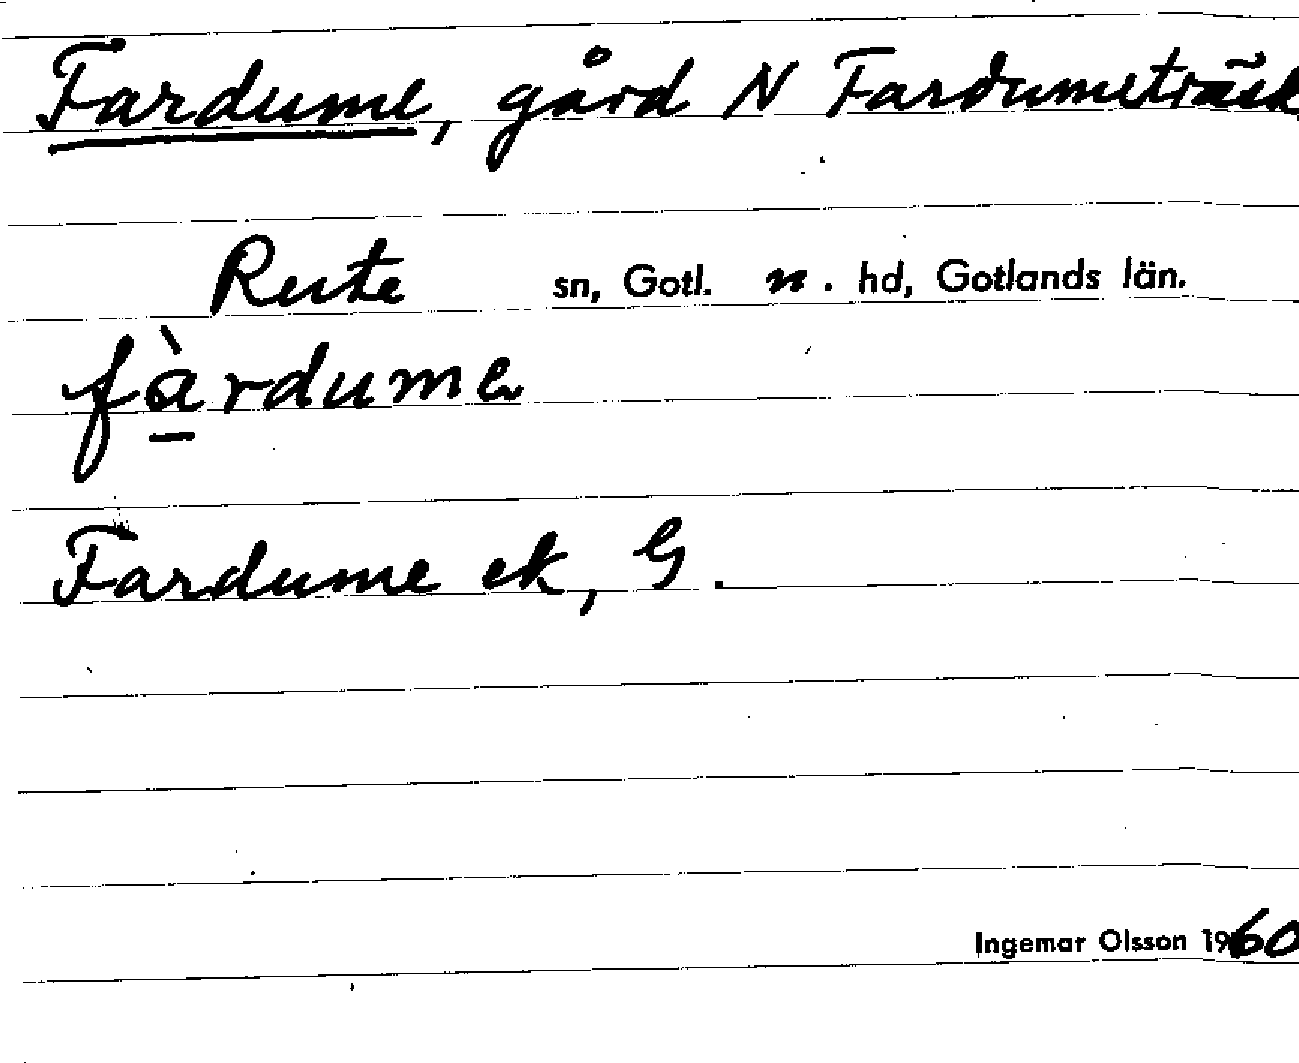 Fardume, gård N Fardumeträsk
Rute sn, Gotl. n. hd, Gotlands län.
fàrdume
Fardume ek, G.
Ingemar Olsson 1960